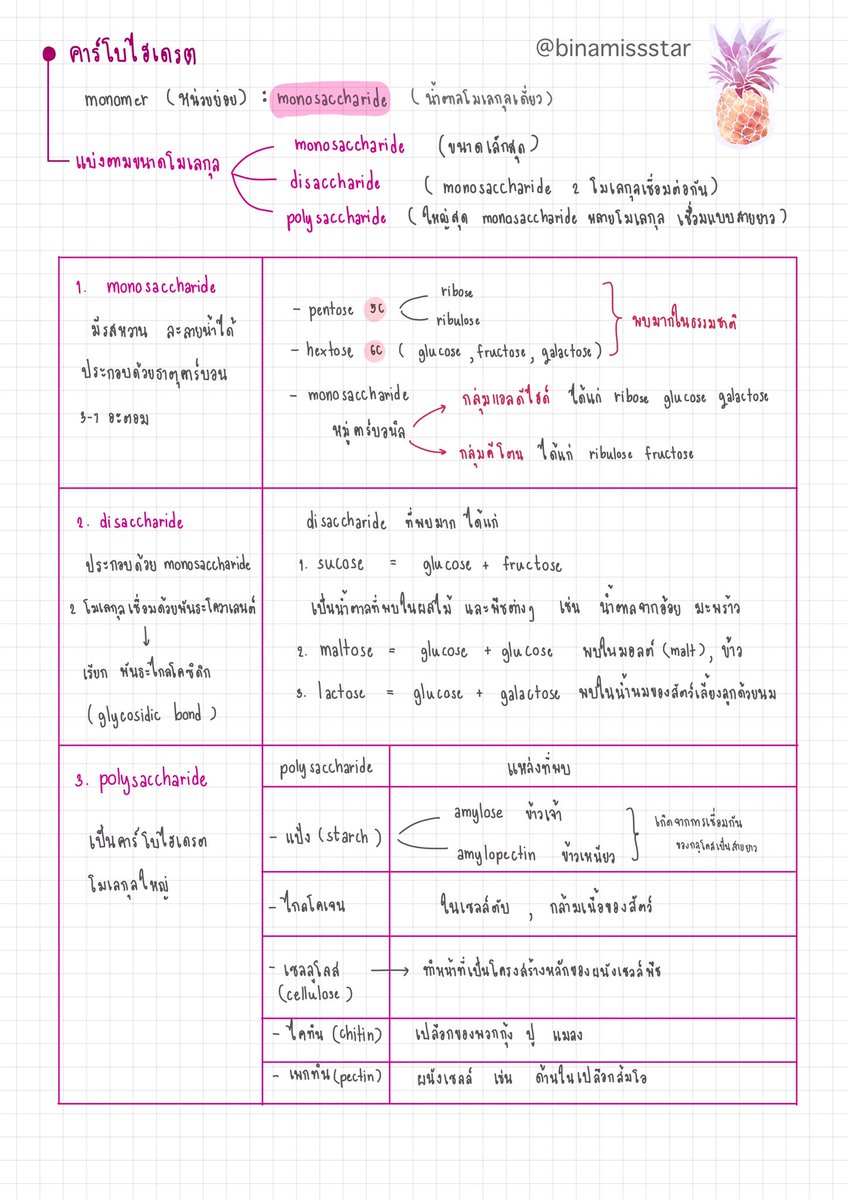 คาร์โบไฮเดรต
@binamissstar
monomer (หน่วยย่อย) : monosaccharide (น้ำตาลโมเลกุลเดี่ยว)
แบ่งตามขนาดโมเลกุล
monosaccharide (ขนาดเล็กสุด)
disaccharide (monosaccharide 2 โมเลกุลเชื่อมต่อกัน)
polysaccharide (ใหญ่สุด monosaccharide หลายโมเลกุล เชื่อมแบบสายยาว)
1. monosaccharide
มีรสหวาน ละลายน้ำได้
ประกอบด้วยธาตุคาร์บอน
3-7 อะตอม
- pentose 5C
ribose
ribulose
- hextose 6C (glucose, fructose, galactose)
พบมากในธรรมชาติ
- monosaccharide
หมู่คาร์บอนิล
กลุ่มแอลดีไฮด์ ได้แก่ ribose glucose galactose
กลุ่มคีโตน ได้แก่ ribulose fructose
2. disaccharide
ประกอบด้วย monosaccharide
2 โมเลกุลเชื่อมด้วยพันธะโควาเลนต์
เรียก พันธะไกลโคซิดิก
(glycosidic bond)
disaccharide ที่พบมาก ได้แก่
1. sucose = glucose + fructose
เป็นน้ำตาลที่พบในผลไม้ และพืชต่างๆ เช่น น้ำตาลจากอ้อย มะพร้าว
2. maltose = glucose + glucose พบในมอลต์ (malt), ข้าว
3. lactose = glucose + galactose พบในน้ำนมของสัตว์เลี้ยงลูกด้วยนม
3. polysaccharide
เป็นคาร์โบไฮเดรต
โมเลกุลใหญ่
polysaccharide
แหล่งที่พบ
- แป้ง (starch)
amylose ข้าวเจ้า
amylopectin ข้าวเหนียว
เกิดจากการเชื่อมกัน
ของกลูโคสเป็นสายยาว
- ไกลโคเจน
ในเซลล์ตับ , กล้ามเนื้อของสัตว์
- เซลลูโคส
(cellulose)
ทำหน้าที่เป็นโครงสร้างหลักของผนังเซลล์พืช
- ไคทิน (chitin)
เปลือกของพวกกุ้ง ปู แมลง
- เพกทิน (pectin)
ผนังเซลล์ เช่น ด้านในเปลือกส้มโอ